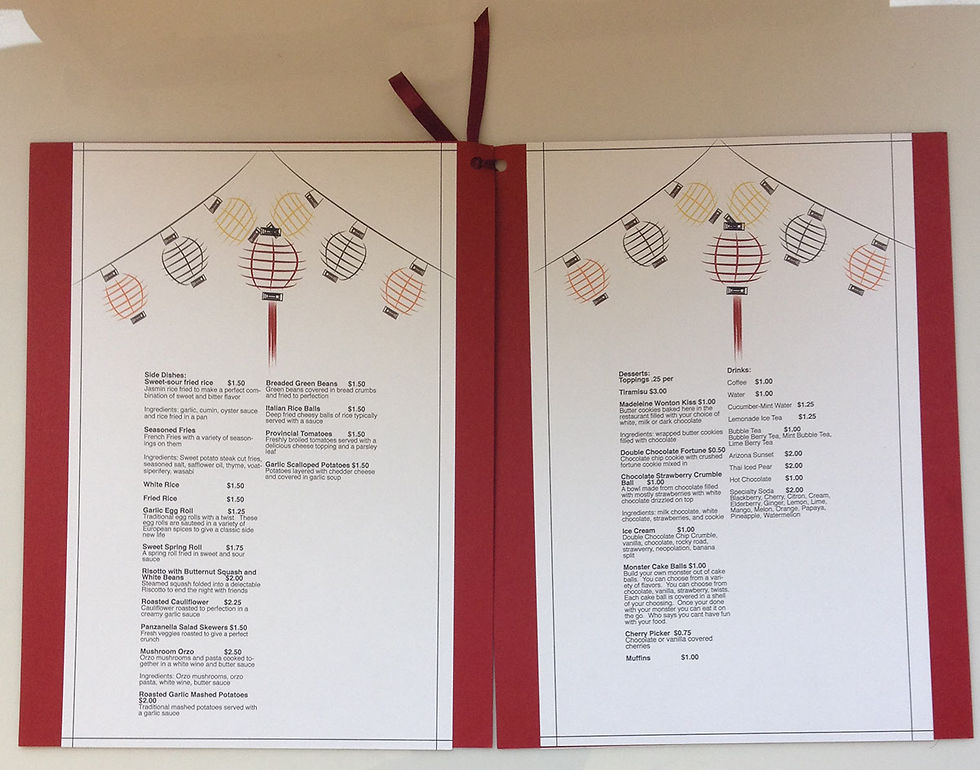 Side Dishes:
Sweet-sour fried rice $1.50
Jasmin rice fried to make a perfect com-
bination of sweet and bitter flavor
Ingredients: garlic, cumin, oyster sauce
and rice fried in a pan
Seasoned Fries
French Fries with a variety of season-
ings on them
Ingredients: Sweet potato steak cut fries,
seasoned salt, safflower oil, thyme, voat-
siperifery, wasabi
White Rice $1.50
Fried Rice $1.50
Garlic Egg Roll $1.25
Traditional egg rolls with a twist. These
egg rolls are sauteed in a variety of
European spices to give a classic side
new life
Sweet Spring Roll $1.75
A spring roll fried in sweet and sour
sauce
Risotto with Butternut Squash and
White Beans $2.00
Steamed squash folded into a delectable
Risotto to end the night with friends
Roasted Cauliflower $2.25
Cauliflower roasted to perfection in a
creamy garlic sauce
Panzanella Salad Skewers $1.50
Fresh veggies roasted to give a perfect
crunch
Mushroom Orzo $2.50
Orzo mushrooms and pasta cooked to-
gether in a white wine and butter sauce
Ingredients: Orzo mushrooms, orzo
pasta, white wine, butter sauce
Roasted Garlic Mashed Potatoes
$2.00
Traditional mashed potatoes served with
a garlic sauce
Breaded Green Beans $1.50
Green beans covered in bread crumbs
and fried to perfection
Italian Rice Balls $1.50
Deep fried cheesy balls of rice typically
served with a sauce
Provincial Tomatoes $1.50
Freshly broiled tomatoes served with a
delicious cheese topping and a parsley
leaf
Garlic Scalloped Potatoes $1.50
Potatoes layered with chedder cheese
and covered in garlic soup
Desserts:
Toppings .25 per
Tiramisu $3.00
Madeleine Wonton Kiss $1.00
Butter cookies baked here in the
restaurant filled with your choice of
white, milk or dark chocolate
Ingredients: wrapped butter cookies
filled with chocolate
Double Chocolate Fortune $0.50
Chocolate chip cookie with crushed
fortune cookie mixed in
Chocolate Strawberry Crumble
Ball $1.00
A bowl made from chocolate filled
with mostly strawberries with white
chocolate drizzled on top
Ingredients: milk chocolate, white
chocolate, strawberries, and cookie
Ice Cream $1.00
Double Chocolate Chip Crumble,
vanilla, chocolate, rocky road,
strawverry, neopolation, banana
split
Monster Cake Balls $1.00
Build your own monster out of cake
balls. You can choose from a vari-
ety of flavors. You can choose from
chocolate, vanilla, strawberry, twists.
Each cake ball is covered in a shell
of your choosing. Once your done
with your monster you can eat it on
the go. Who says you cant have fun
with your food.
Cherry Picker $0.75
Chocolate or vanilla covered
cherries
Muffins $1.00
Drinks:
Coffee $1.00
Water $1.00
Cucumber-Mint Water $1.25
Lemonade Ice Tea $1.25
Bubble Tea $1.00
Bubble Berry Tea, Mint Bubble Tea,
Lime Berry Tea
Arizona Sunset $2.00
Thai Iced Pear $2.00
Hot Chocolate $1.00
Specialty Soda $2.00
Blackberry, Cherry, Citron, Cream,
Elderberry, Ginger, Lemon, Lime,
Mango, Melon, Orange, Papaya,
Pineapple, Watermelon